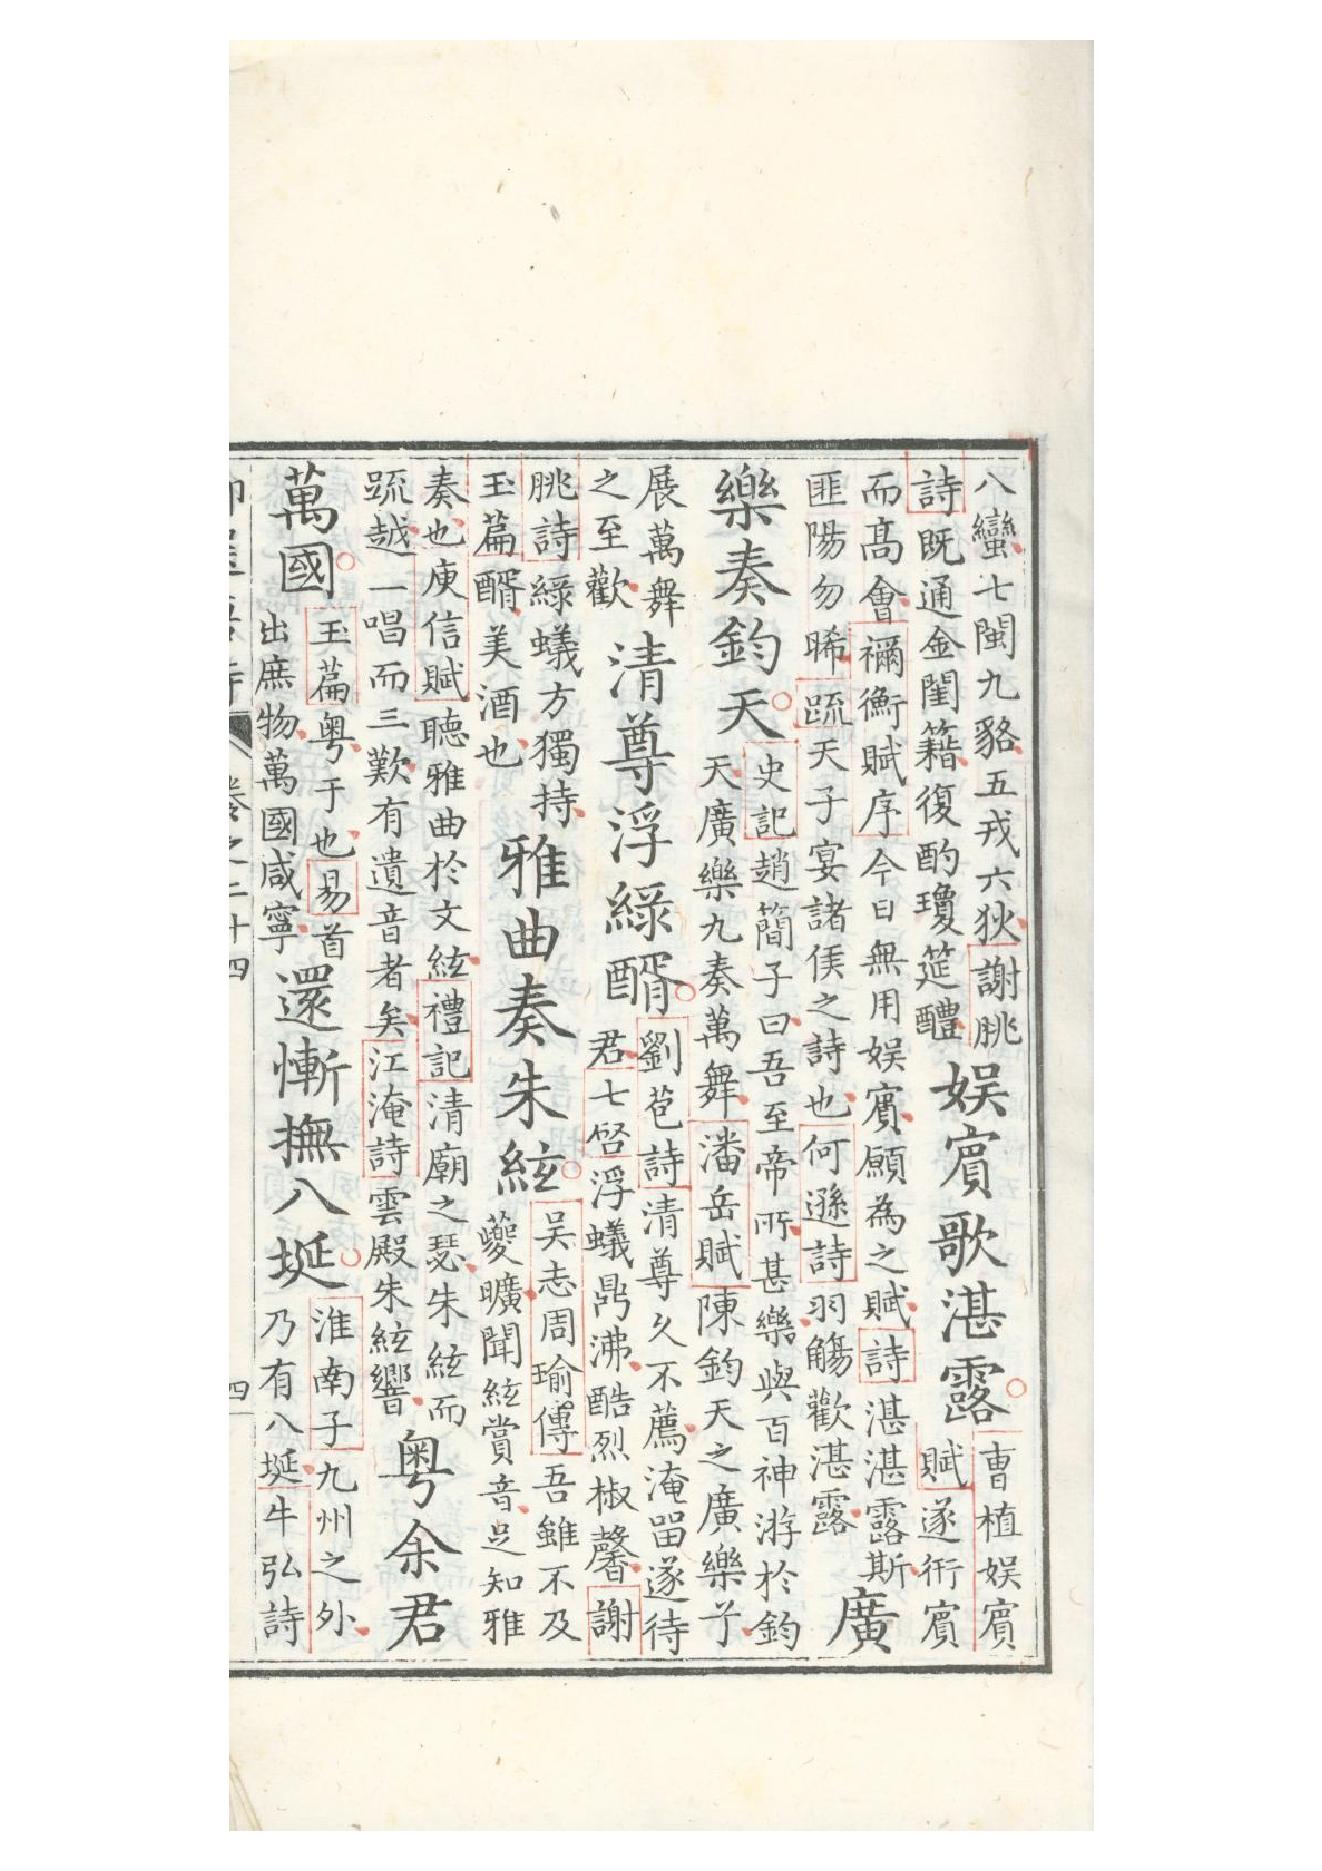 八蠻七閩九貉五戎六狄謝朓
詩既通金閨籍復酌瓊筵醴
娛賓歌湛露
曹植娛賓
賦遂衎賓
而高會禰衡賦序今日無用娛賓願為之賦詩湛湛露斯
匪陽勿晞疏天子宴諸侯之詩也何遜詩羽觴歡湛露
廣
樂奏鈞天
史記趙簡子曰吾至帝所甚樂與百神游於鈞
天廣樂九奏萬舞潘岳賦陳鈞天之廣樂兮
展萬舞
之至歡
清尊浮綠醑
劉苞詩清尊久不薦淹留遂待
君七啓浮蟻鼎沸酷烈椒馨謝
朓詩綠蟻方獨持
玉篇醑美酒也
雅曲奏朱絃
吳志周瑜傳吾雖不及
夔曠聞絃賞音足知雅
奏也庾信賦聽雅曲於文絃禮記清廟之瑟朱絃而
疏越一唱而三歎有遺音者矣江淹詩雲殿朱絃響
粵余君
萬國
玉篇粵于也易首
出庶物萬國咸寧
還慚撫八埏
淮南子九州之外
乃有八埏牛弘詩
卷之二十四
四